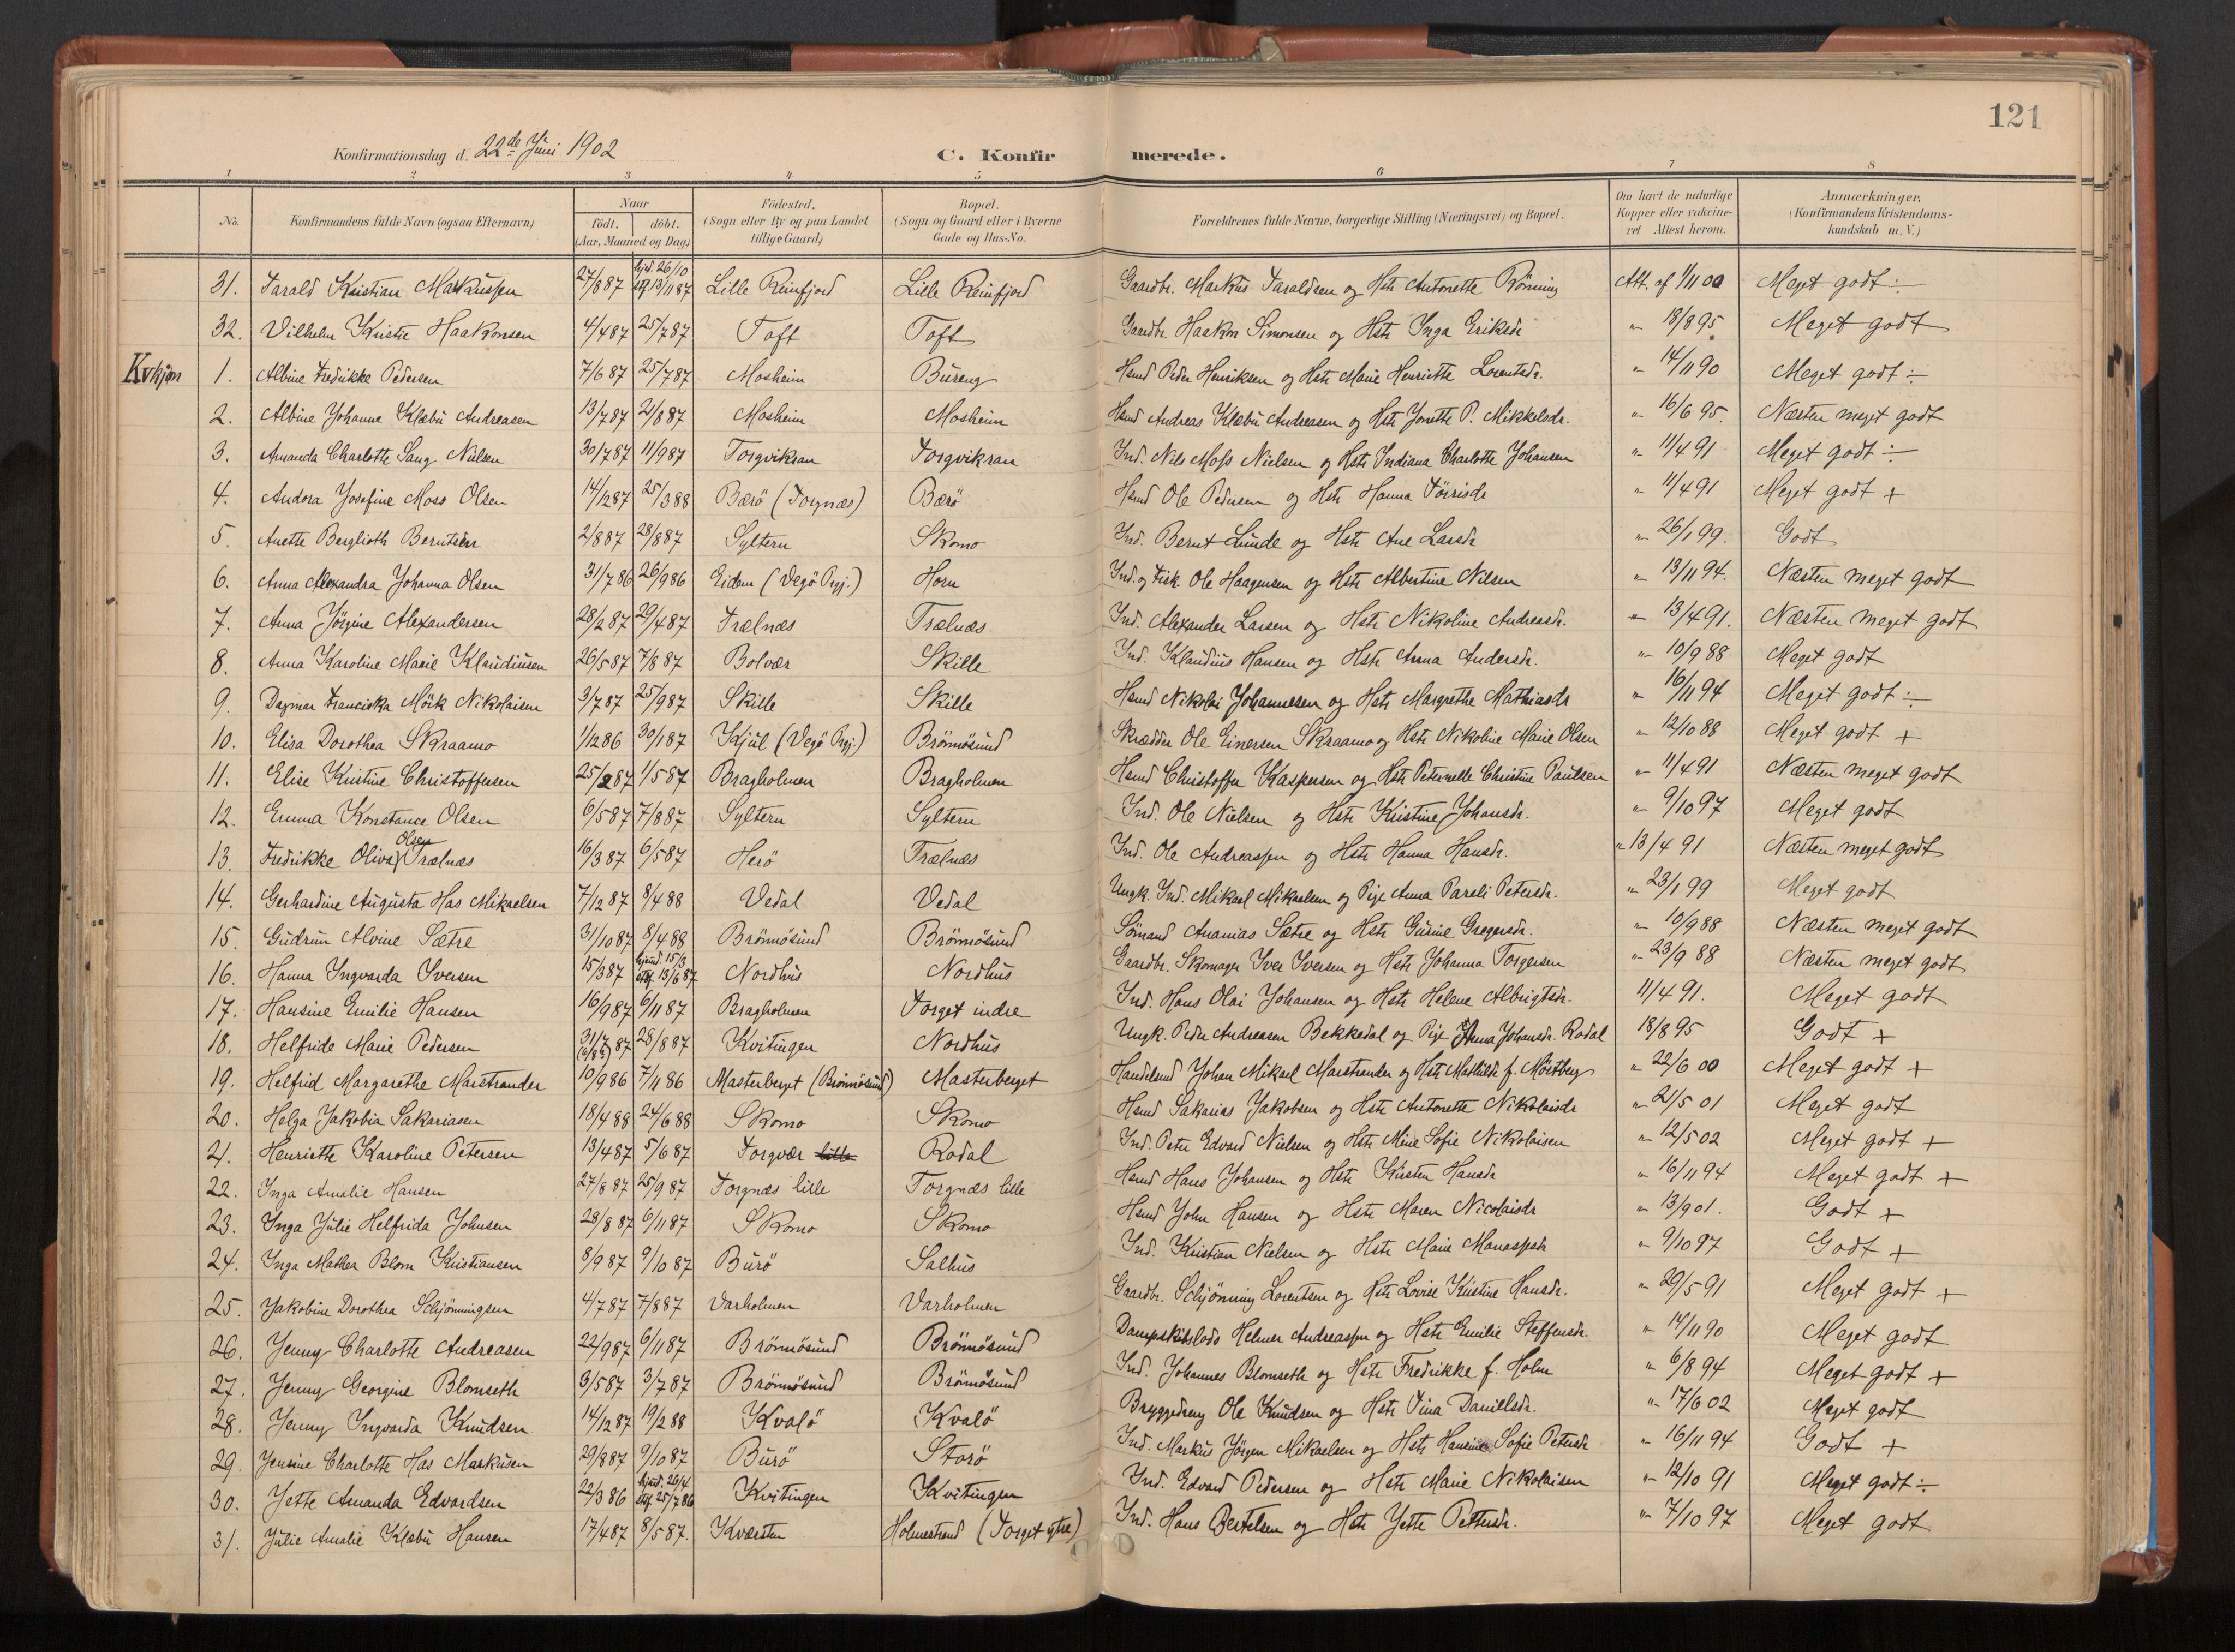 121
Konfirmationsdag d. 22de Juni 1902
C. Konfirmerede.
1 2 3 4 5 6 7 8
No.
Konfirmandens fulde Navn (ogsaa Efternavn)
Naar
födt. döbt.
(Aar, Maaned og Dag)
Födested.
(Sogn eller By og paa Landet
tillige Gaard)
Bopæl.
(Sogn og Gaard eller i Byerne
Gade og Hus-No.
Forældrenes fulde Navne, borgerlige Stilling (Næringsvei) og Bopæl.
Om havt de naturlige
Kopper eller vakcine-
ret Attest herom.
Anmærkninger,
(Konfirmandens Kristendoms-
kundskab m. V.)
31. Tarald Kristian Markussen 27/8 87 hjed. 26/10 stf. 13/11 87 Lille Reinfjord Lille Reinfjord Gaardbr. Markus Taraldsen og Hstr Antonette Rönning Att. af 1/11 00 Meget godt ÷
32. Vilhelm Kristr Haakonsen 4/4 87 25/7 87 Toft Toft Gaardbr. Haakon Simonsen og Hstr Inga Eriksdr " 18/8 95 Meget godt
Kvkjøn 1. Albine Fredrikke Pedersen 7/6 87 25/7 87 Mosheim Bureng Hsmd Peder Henriksen og Hstr Marie Henriette Lorentsdr. " 14/11 90 Meget godt ÷
2. Albine Johanne Klæbu Andreasen 13/7 87 21/8 87 Mosheim Mosheim Hsmd Andreas Klæbu Andreasen og Hstr Jonette P. Mikkelsdr. " 16/6 95. Næsten meget godt
3. Amanda Charlotte Sang Nilsen 30/7 87 11/9 87 Torgvikran Torgvikran Ind. Nils Moss Nielsen og Hstr Indiana Charlotte Johansen " 11/4 91 Meget godt ÷
4. Andora Josefine Moss Olsen 14/12 87 25/3 88 Bærö (Torgnæs) Bærö Hsmd Ole Pedersen og Hstr Hanna Törrisdr " 11/4 91 Meget godt +
5. Anette Berglioth Berntsen 2/8 87 28/8 87 Syltern Skomo Ind. Bernt Lunde og Hstr Ane Larsdr " 26/1 99. Godt
6. Anna Alexandra Johanna Olsen 31/7 86 26/9 86 Eidem (Vegö Prgj.) Horn Ind. og Fisk. Ole Haagensen og Hstr Albertine Nilsen " 13/11 94. Næsten meget godt
7. Anna Jörgine Alexandersen 28/2 87 29/4 87 Trælnæs Trælnæs Ind. Alexander Larsen og Hstr Nikoline Andreasdr. " 13/4 91. Næsten meget godt
8. Anna Karoline Marie Klaudiusen 26/5 87 7/8 87 Bolvær Skille Ind. Klaudius Hansen og Hstr Anna Andersdr. " 10/9 88 Meget godt
9. Dagmar Franciska Mörk Nikolaisen 3/7 87 25/9 87 Skille Skille Hsmd Nikolai Johannesen og Hstr Margrethe Mathiasdr " 16/11 94 Meget godt ÷
10. Elisa Dorothea Skraamo 1/12 86 30/1 87 Kjul (Vegö Prgj.) Brönnösund Skrædder Ole Einersen Skraamo og Hstr Nikoline Marie Olsen " 12/10 88 Meget godt +
11. Elise Kristine Christoffersen 25/2 87 1/5 87 Bragholmen Bragholmen Hsmd Christoffer Kaspersen og Hstr Peternelle Christine Paulsen " 11/4 91 Næsten meget godt
12. Emma Konstance Olsen 6/5 87 7/8 87 Syltern Syltern Ind. Ole Nielsen og Hstr Kristine Johansdr. " 9/10 97 Meget godt
13. Fredrikke Oliva Olsen Trælnæs 16/3 87 6/5 87 Herö Trælnæs Ind. Ole Andreassen og Hstr Hanna Hansdr. " 13/4 91 Næsten meget godt
14. Gerhardine Augusta Has Mikaelsen 7/12 87 8/4 88 Vedal Vedal Ungk. Ind. Mikael Mikaelsen og Pige Anna Pareli Petersdr. " 23/1 99 Meget godt
15. Gudrun Alvine Sætre 31/10 87 8/4 88 Brönnösund Brönnösund Sömand Ananias Sætre og Hstr Gurine Gregersdr. " 10/9 88 Næsten meget godt
16. Hanna Ingvarda Iversen 15/3 87 hjemd. 15/3 stf. 13/6 87. Nordhus Nordhus Gaardbr. Skomager Iver Iversen og Hstr Johanna Torgersen " 23/9 88 Næsten meget godt
17. Hansine Emilie Hansen 16/9 87 6/11 87 Bragholmen Torget indre Ind. Hans Olai Johansen og Hstr Helene Albrigtsdr. 11/4 91. Meget godt
18. Helfride Marie Pedersen 31/7 87 28/8 87 Kvitingen Nordhus Ungk. Peder Andreasen Bekkedal og Pige Anna Johansdr. Rodal 18/8 95 Godt +
19. Helfrid Margarethe Marstrander 10/9 86 7/11 86 Masterberget (Brönnösund) Masterberget Handelsmd Johan Mikael Marstrander og Hstr Mathilde f. Möstberg " 22/6 00 Meget godt +
20. Helga Jakobia Sakariasen 18/4 88 24/6 88 Skomo Skomo Hsmd Sakarias Jakobsen og Hstr Antonette Nikolaisdr " 21/5 01 Meget godt
21. Henriette Karoline Petersen 13/4 87 5/6 87 Torgvær lille Rodal Ind. Peter Edvard Nielsen og Hstr Mine Sofie Nikolaisen " 12/5 02 Meget godt +
22. Inga Amalie Hansen 27/8 87 25/9 87 Torgnæs lille Torgnæs lille Hsmd Hans Johansen og Hstr Kirsten Hansdr " 16/11 94 Meget godt +
23. Inga Julie Helfrida Johnsen 28/8 87 6/11 87 Skomo Skomo Hsmd John Hansen og Hstr Maren Nicolaisdr " 13/9 01. Godt +
24. Inga Mathea Blom Kristiansen 8/9 87 9/10 87 Burö Salhus Ind. Kristian Nielsen og Hstr Marie Manassesdr " 9/10 97 Godt +
25. Jakobine Dorothea Schjönningsen 4/7 87 7/8 87 Varholmen Varholmen Gaardbr. Schjönning Lorentsen og Hstr Lovise Kristine Hansdr. " 29/5 91 Meget godt +
26. Jenny Charlotte Andreasen 22/9 87 6/11 87 Brönnösund Brönnösund Dampskibslods Helmer Andreassen og Hstr Emilie Steffensdr. " 14/11 90 Meget godt
27. Jenny Georgine Blomseth 3/5 87 3/7 87 Brönnösund Brönnösund Ind. Johannes Blomseth og Hstr Fredrikke f. Holm " 6/8 94 Meget godt +
28. Jenny Ingvarda Knudsen 14/12 87 19/2 88 Kvalö Kvalö Bryggedreng Ole Knudsen og Hstr Tina Danielsdr. " 17/6 02 Meget godt
29. Jensine Charlotte Has Markusen 29/8 87 9/10 87 Burö Storö Ind. Markus Jörgen Mikaelsen og Hstr Hansine Sofie Petersdr " 16/11 94 Godt +
30. Jette Amanda Edvardsen 22/3 86 hjemd. 26/4 stf. 25/7 86 Kvitingen Kvitingen Ind. Edvard Pedersen og Hstr Marie Nikolaisen " 12/10 91 Meget godt ÷
31. Julie Amalie Klæbu Hansen 17/4 87 8/5 87. Kværsten Holmestrand (Torget ytre) Ind. Hans Bertelsen og Hstr Jette Pettersdr. " 7/10 97 Meget godt